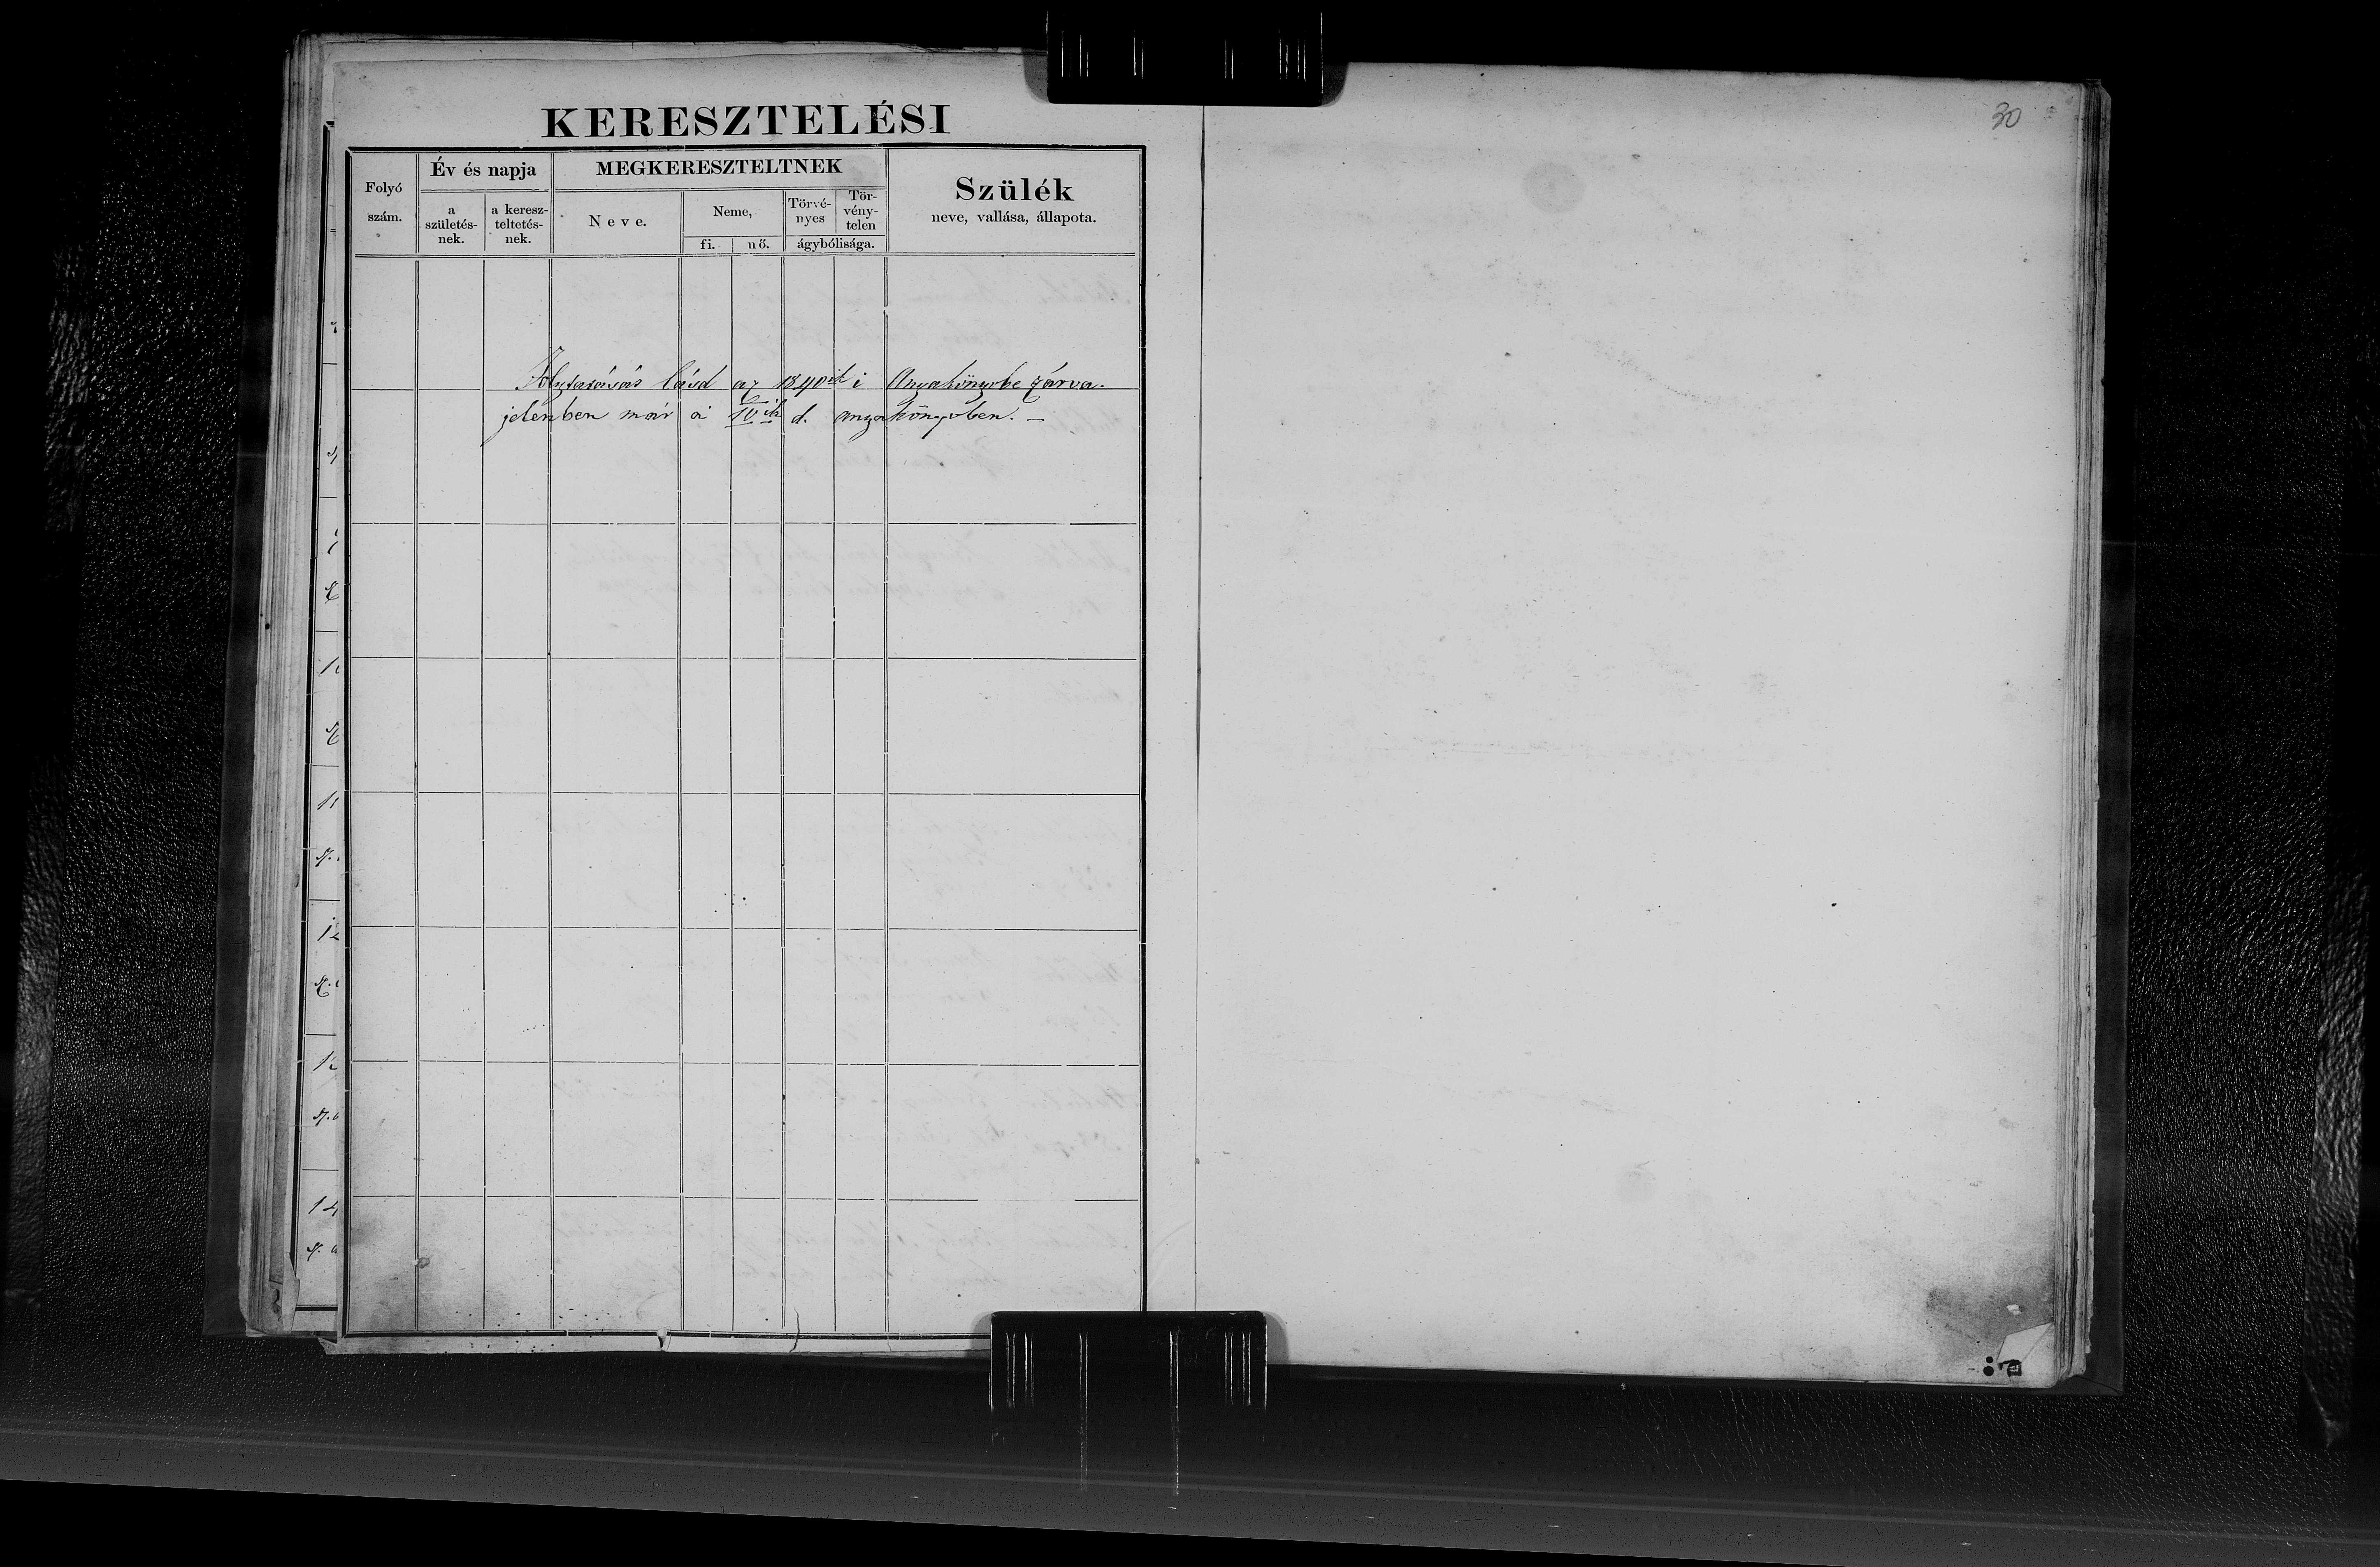 30
KERESZTELÉSI
Folyó
szám.
Év és napja
a
születés-
nek.
a keresz-
teltetés-
nek.
MEGKERESZTELTNEK
Neve.
Neme,
fi.
nő.
Törvé-
nyes
Tör-
vény-
telen
ágybólisága.
Szülék
neve, vallása, állapota.
lásd az i Anyakönyvbe zárva.
jelenben már a IV ik d. anyakönyvben. —